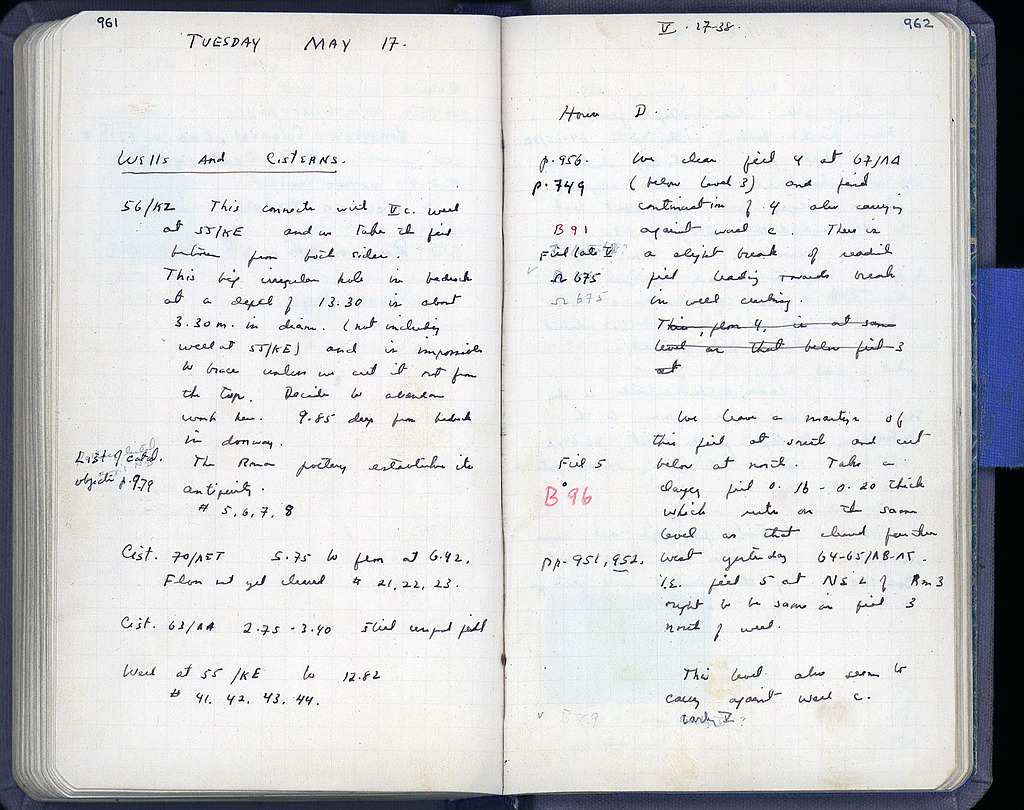 961
TUESDAY MAY 17.
Wells And Cisterns.
56/KZ This connects with V c. well
at 55/KE and we take the fill
between from both sides.
This big irregular hole in bedrock
at a depth of 13.30 is about
3.30 m. in diam. (not including
well at 55/KE) and is impossible
to brace unless we cut it out from
the top. Decide to abandon
work here. 9.85 deep from bedrock
in doorway.
List of catal.
objects p. 979
The Roman pottery establishes its
antiquity.
# 5, 6, 7, 8
Cist. 70/AET 5.75 to floor at 6.42.
Floor not yet cleared # 21, 22, 23.
Cist. 63/AA 2.75 - 3.40 still unfill
Well at 55/KE to 12.82
# 41, 42, 43, 44.
962
V. 17-38.
House D.
p. 956. We clear fill 4 at 67/AA
p. 749 (below level 3) and find
continuation of 4 also carrying
B 91 against wall c. There is
Fill late V? a slight break of reddish
Ω 675 fill leading towards break
Ω 675 in well curbing.
This, floor 4, is at same
level as that below fill 3
at
We leave a martyr of
this fill at south and cut
Fill 5 below at north. Take a
B 96 clayey fill 0.16 - 0.20 thick
which rests on the same
level as that cleared further
pp. 951, 952. west yesterday 64-65/AB-AΓ.
I.E. fill 5 at NE of Rm 3
ought to be same as fill 3
north of wall.
This level also seems to
carry against wall c.
early V?
B 89